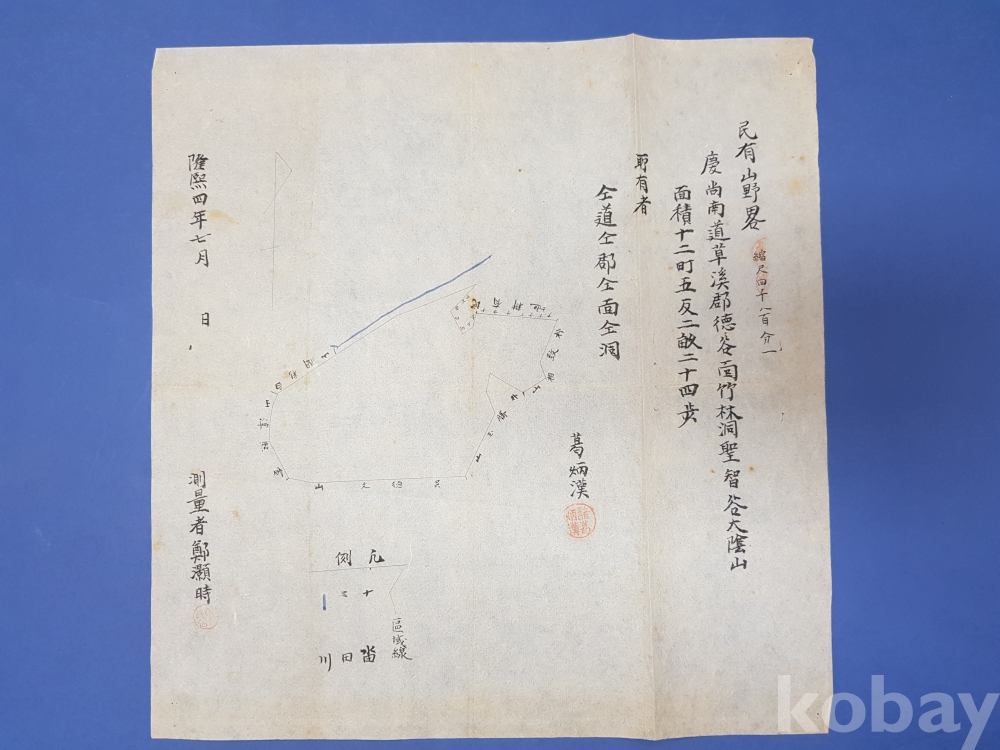 民有山野畧
縮尺四千八百分一
慶尚南道草溪郡德谷面竹林洞聖智谷大陰山
面積十二町五反二畝二十四步
所有者
仝道仝郡仝面仝洞
葛炳漢
凡例
區域線
畓
田
川
隆熙四年七月 日
測量者鄭灝時
kobay